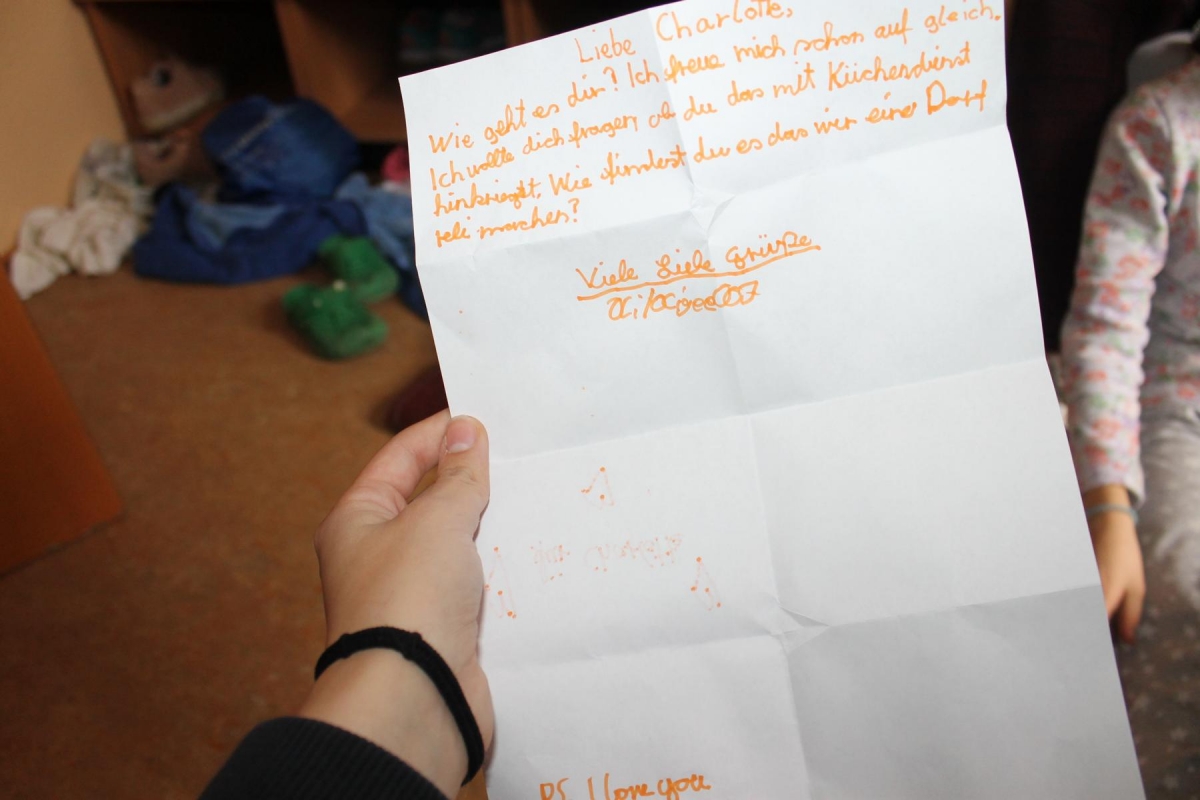 Liebe Charlotte,
Wie geht es dir? Ich freue mich schon auf gleich.
Ich wollte dich fragen, ob du das mit Küchendienst
hinkriegst. Wie findest du es das wir eine Dorf
reli machen?
Viele Liebe Grüße
PS I love you